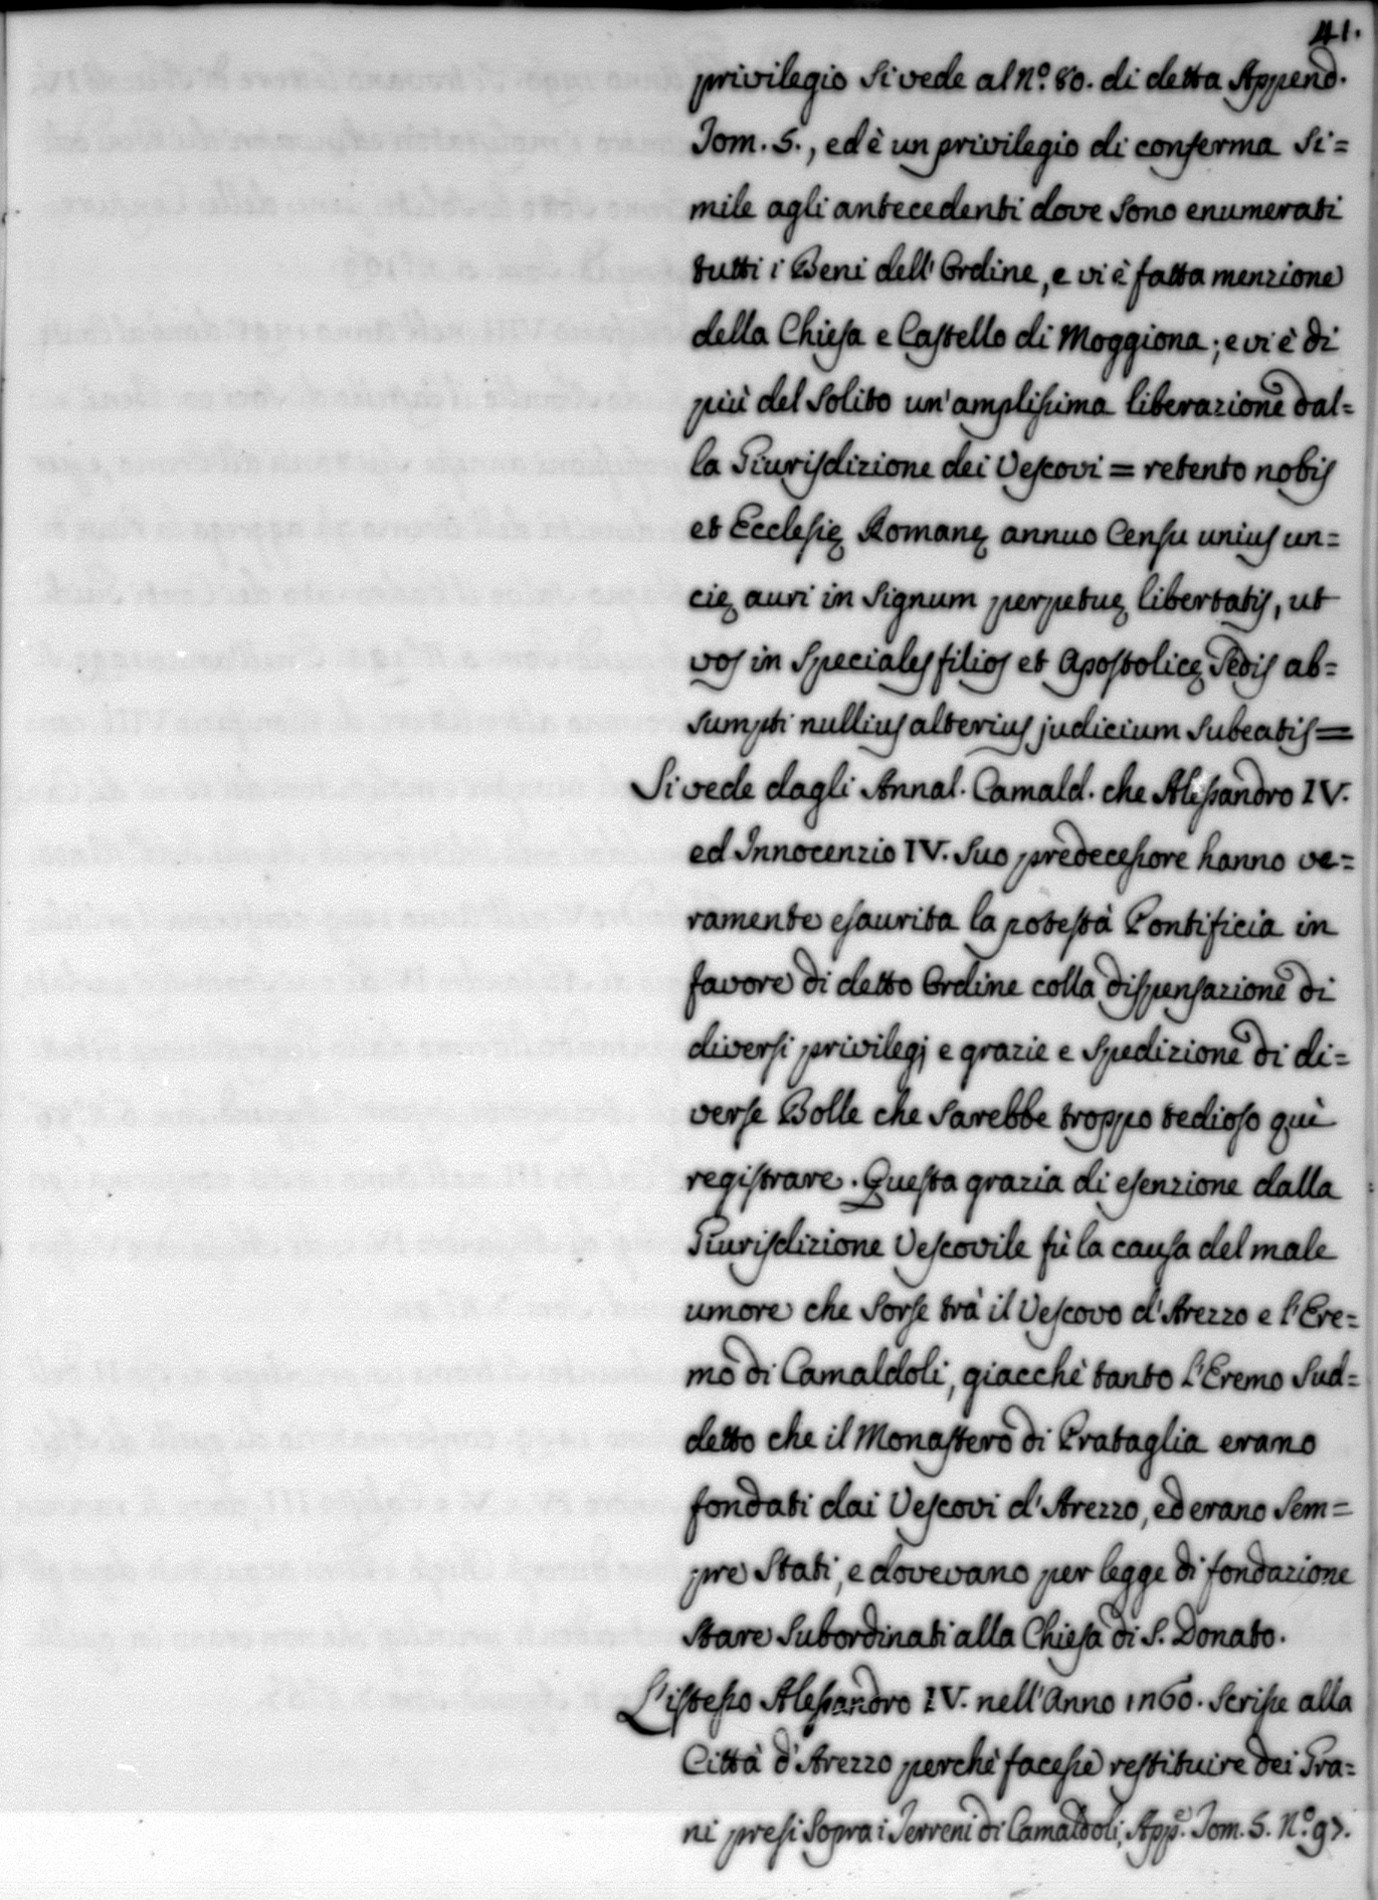 41.
privilegio si vede al N.º 80. di detta Append.
Tom. 5., ed è un privilegio di conferma si=
mile agli antecedenti dove sono enumerati
tutti i Beni dell' Ordine, e vi è fatta menzione
della Chiesa e Castello di Moggiona; e vi è di
più del solito un' amplissima liberazione dal=
la Giurisdizione dei Vescovi = retento nobis
et Ecclesię Romanę annuo Censu unius un=
cię auri in signum perpetuę libertatis, ut
vos in speciales filios et Apostolicę Sedis ab=
sumpti nullius alterius judicium subeatis =
Si vede dagli Annal. Camald. che Alessandro IV.
ed Innocenzio IV. suo predecessore hanno ve=
ramente esaurita la potestà Pontificia in
favore di detto Ordine colla dispensazione di
diversi privilegj e grazie e spedizione di di=
verse Bolle che sarebbe troppo tedioso quì
registrare. Questa grazia di esenzione dalla
Giurisdizione Vescovile fù la causa del male
umore che sorse trà il Vescovo d'Arezzo e l'Ere=
mo di Camaldoli, giacchè tanto l'Eremo sud=
detto che il Monastero di Prataglia erano
fondati dai Vescovi d'Arezzo, ed erano sem=
pre stati, e dovevano per legge di fondazione
stare subordinati alla Chiesa di S. Donato.
L'istesso Alessandro IV. nell'Anno 1260. scrisse alla
Città d'Arezzo perchè facesse restituire dei Gra=
ni presi sopra i Terreni di Camaldoli, App.e Tom. 5. N.º 97.